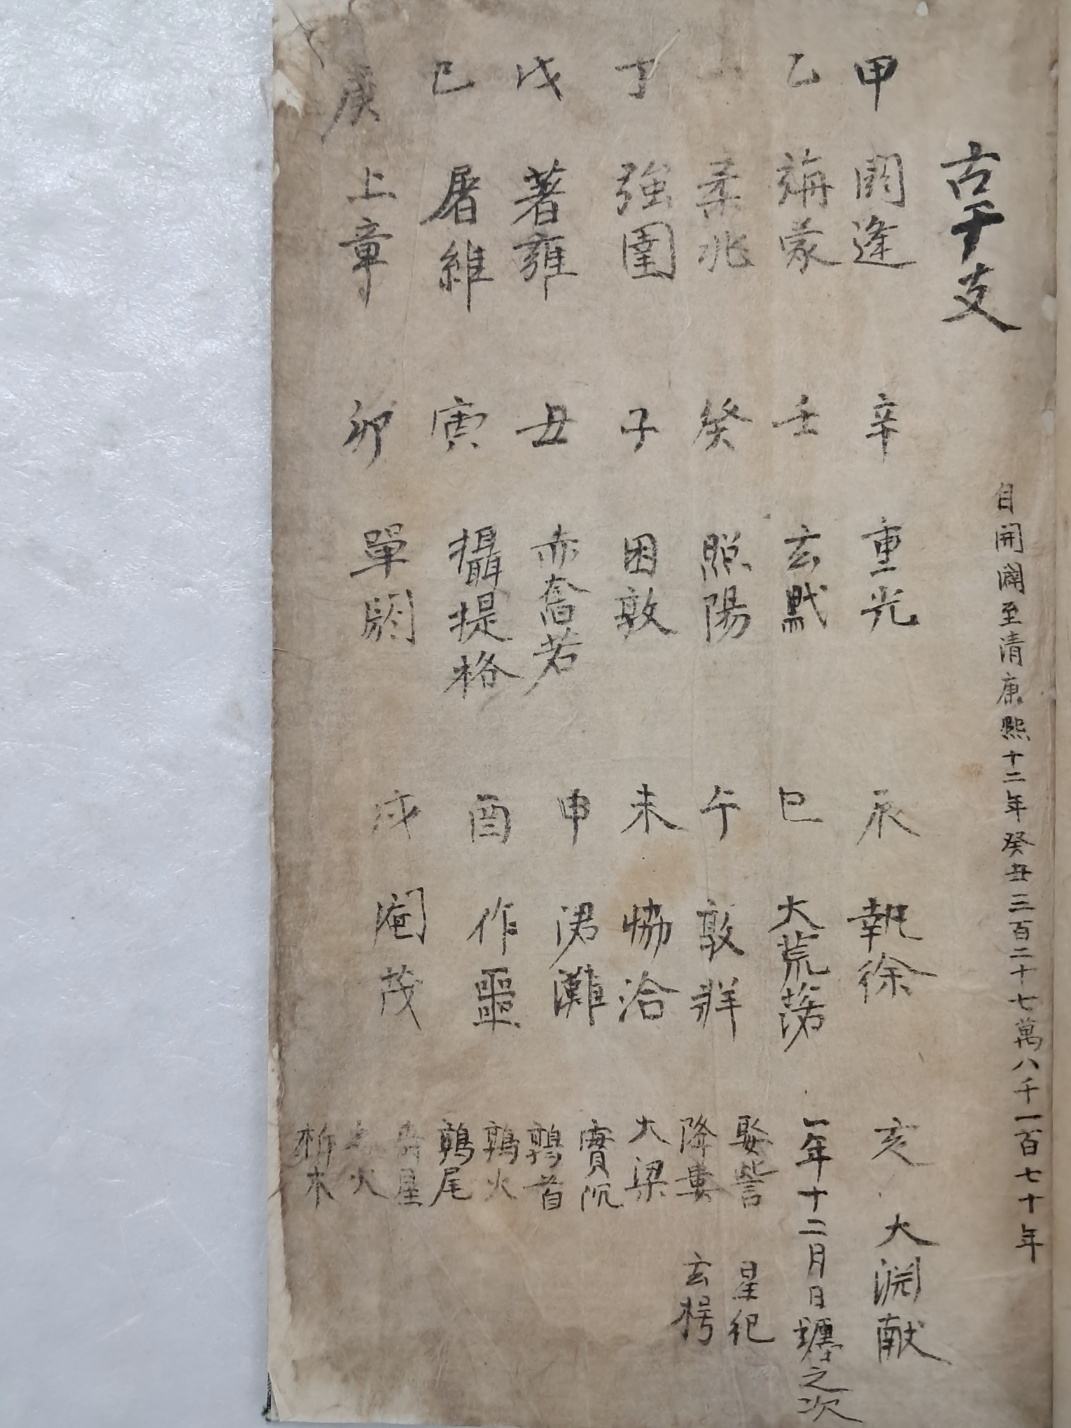 古干支
自開闢至清康熙十二年癸丑三百二十七萬八千一百七十年
甲 閼逢
乙 旃蒙
柔兆
丁 強圉
戊 著雍
己 屠維
庚 上章
辛 重光
壬 玄黓
癸 照陽
子 困敦
丑 赤奮若
寅 攝提格
卯 單閼
辰 執徐
巳 大荒落
午 敦牂
未 協洽
申 涒灘
酉 作噩
戌 閹茂
亥 大淵献
一年十二月日躔之次
娶訾
降婁
大梁
實沉
鶉首
鶉火
鶉尾
星
火
析木
星紀
玄枵